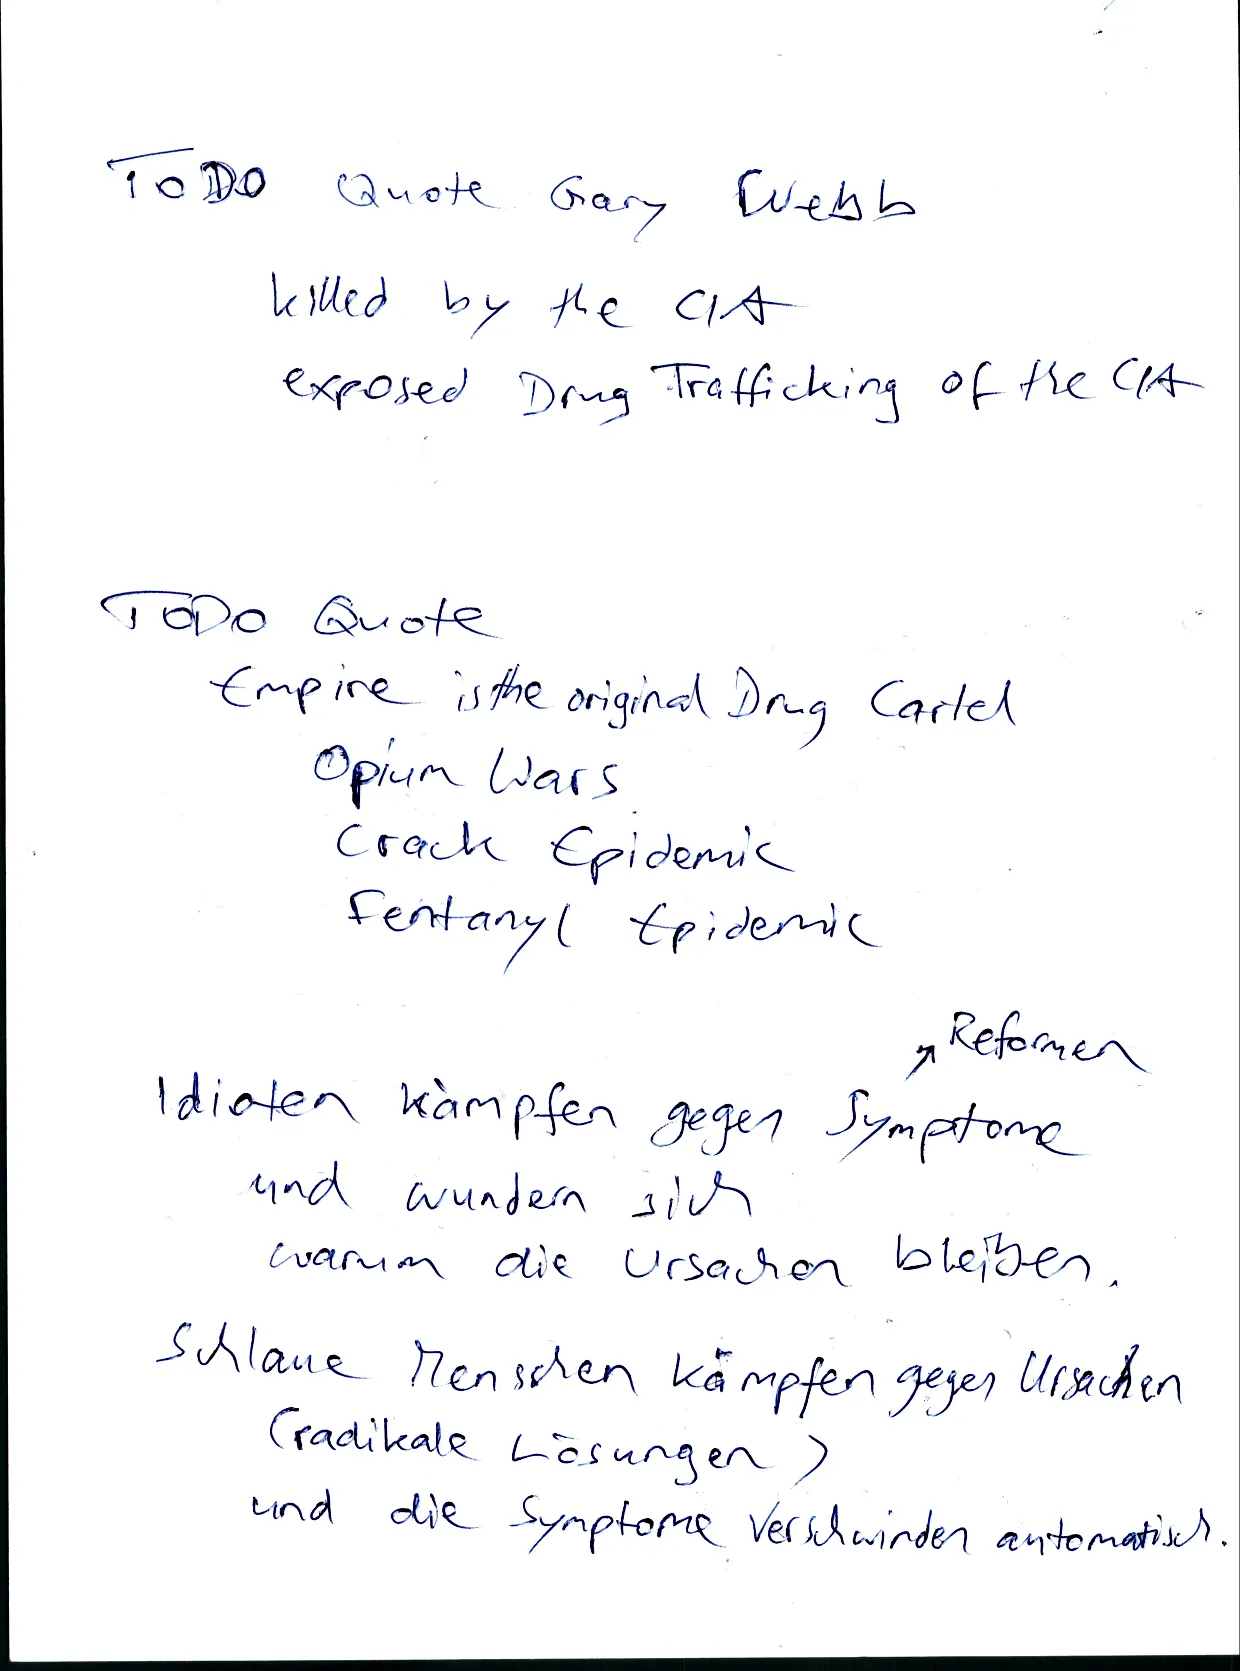 TODO Quote Gary Webb
killed by the CIA
exposed Drug Trafficking of the CIA
TODO Quote
Empire is the original Drug Cartel
Opium Wars
Crack Epidemic
Fentanyl Epidemic
↗ Reformen
Idioten kämpfen gegen Symptome
und wundern sich
warum die Ursachen bleiben.
Schlaue Menschen kämpfen gegen Ursachen
(radikale Lösungen)
und die Symptome verschwinden automatisch.